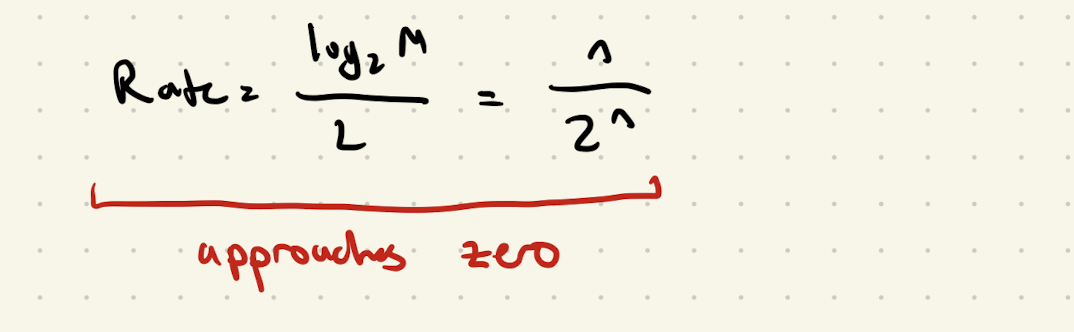 Rate = log₂ M / L = n / 2ⁿ
approaches zero